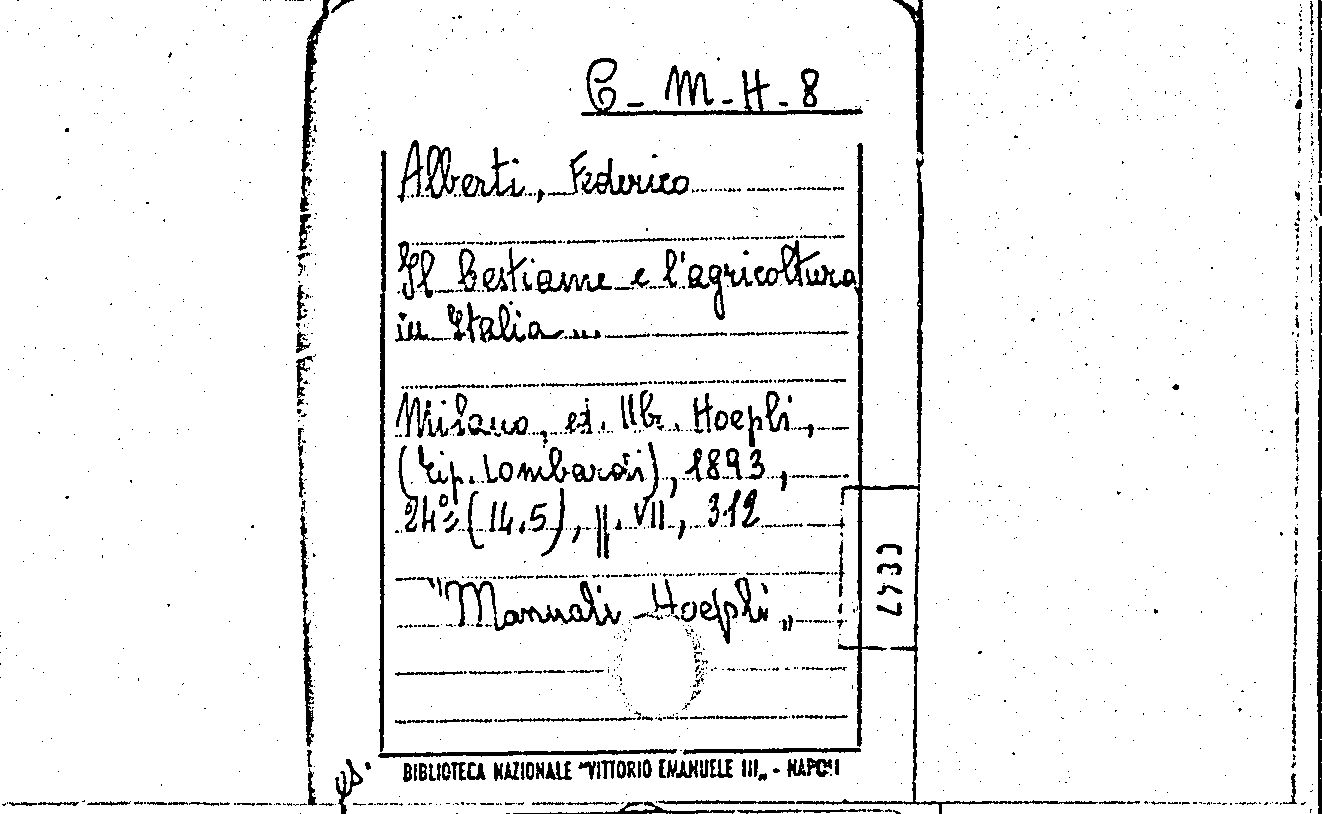 C - M - H - 8
Alberti, Federico
Il bestiame e l'agricoltura
in Italia ...
Milano, ed. libr. Hoepli,
(Tip. Lombardi), 1893,
24° (14.5), pp. VII, 312
"Manuali Hoepli„
BIBLIOTECA NAZIONALE "VITTORIO EMANUELE III„ - NAPOLI